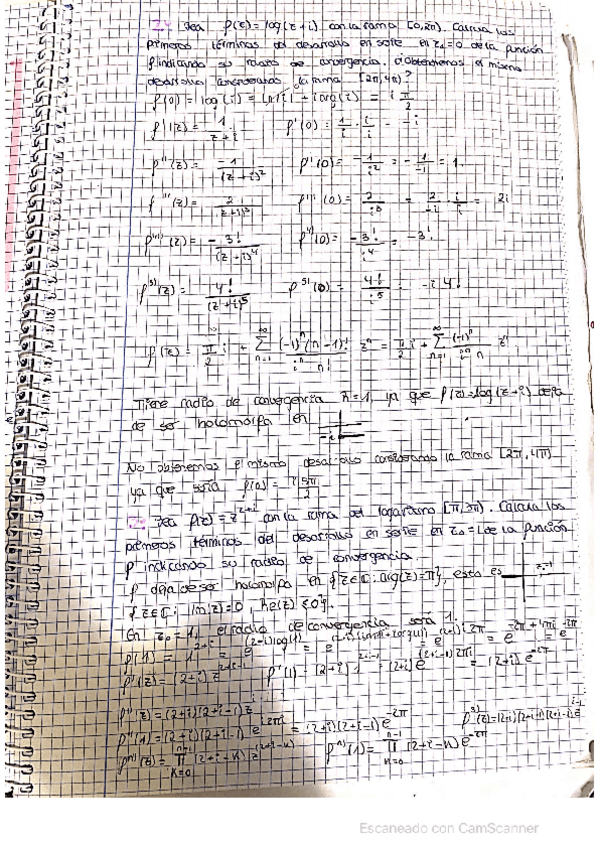 Sea f(z) = log(z+i) con la rama [0,2π). Calcula los
primeros términos del desarrollo en serie en z₀=0 de la función
f indicando su radio de convergencia. ¿Obtenemos el mismo
desarrollo considerando la rama [2π,4π)?
f(0) = log(i) = ln|i| + i arg(i) = i π/2
f'(z) = 1/(z+i) f'(0) = 1/i · i/i = -i
f''(z) = -1/(z+i)² f''(0) = -1/i² = -1/-1 = 1.
f'''(z) = 2/(z+i)³ f'''(0) = 2/i³ = 2/-i · i/i = 2i
(z) = -3!/(z+i)⁴ (0) = -3!/i⁴ = -3!
f⁵⁾(z) = 4!/(z+i)⁵ f⁵⁾(0) = 4!/i⁵ = -i4!
f(z) = π/2 i + ∑ₙ₌₁^∞ (-1)ⁿ(n-1)!/(iⁿ n!) zⁿ = π/2 i + ∑ₙ₌₁^∞ (-1)ⁿ/(iⁿ n) zⁿ
Tiene radio de convergencia R=1, ya que f(z)=log(z+i) deja
de ser holomorfa en
-i
No obtenemos el mismo desarrollo considerando la rama [2π,4π)
ya que sería f(0) = i 5π/2
Sea f(z) = z²⁺ⁱ con la rama del logaritmo [π,3π). Calcula los
primeros términos del desarrollo en serie en z₀=1 de la función
f indicando su radio de convergencia.
f deja de ser holomorfa en {z∈ℂ: arg(z)=π}, esto es
{z∈ℂ: Im(z)=0, Re(z)≤0}.
En z₀=1, el radio de convergencia será 1.
f(1) = 1²⁺ⁱ = e^(2+i)log(1) = = e^(2+i)i2π = e^-2π+4πi = e^-2π
f'(z) = (2+i) z^2+i-1 f'(1) = (2+i) 1^2+i-1 = (2+i) e^(2+i-1)2πi = (2+i) e^-2π
f''(z) = (2+i)(2+i-1) z^i
f''(1) = (2+i)(2+i-1) e^i2πi = (2+i)(2+i-1) e^-2π f³⁾(z) = (2+i)(2+i-1)(2+i-2) z^i-1
fⁿ⁾(z) = ∏ₖ₌₀^n-1 (2+i-k) z^(2+i-n) fⁿ⁾(1) = ∏ₖ₌₀^n-1 (2+i-k) e^-2π
Escaneado con CamScanner